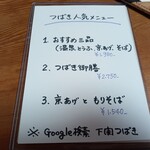 つばき人気メニュー
1. おすすめ三品
(温泉とうふ、京あげ、そば)
2. つばき御膳
¥2,750
3. 京あげと もりそば
¥1,540
※ Google検索 下関つばき